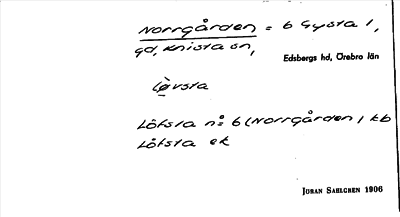 Norrgården = 6 Gysta 1,
gd, Knista sn,
Edsbergs hd, Örebro län
Lövsta
Löfsta nº 6 (Norrgården) kb
Löfsta ek
JORAN SAHLGREN 1906